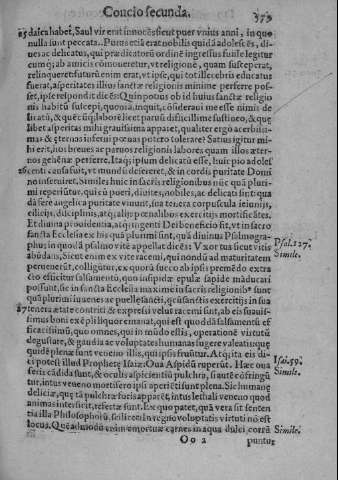 Concio secunda. 579
25 daica habet, Saul vir erat innocēs sicut puer vnius anni, in quo
nulla sunt peccata.. Purus etiā erat nobilis quidā adolescēs, di
ues ac delicatus, qui prædicatorū ordinē ingressus fuisse legitur
cum q; ab amicis cōmoueretur, vt religionē, quam susceperat,
relinqueret futurū enim erat, vt ipse, qui tot illecebris educatus
fuerat, asperitates illius sanctæ religionis minime perferre pos
set, ipse respondit dicēs: Quin potius ob id huius sanctæ religio
nis habitū suscepi, quoniā inquit, cōsideraui me esse nimis de
licatū, & quēcūq; laborē licet paruū difficillime suffero, & que
libet asperitas mihi grauissima apparet, qualiter ergo acerbissi-
mas & æternas inferni pœnas potero tolerare? Satius igitur mi-
hi erit, hos breues ac paruos religionis labores, quam illos æter-
nos gehēnæ perferre. Itaq; ipsum delicatū esse, huic pio adoles
26 centi causa fuit, vt mundū desereret, & in cordis puritate Domi
no inseruiret. Similes huic in sacris religionibus nūc quā pluri-
mi reperiūtur, qui cū pueri, diuites, nobiles, ac delicati sint: qua
dā fere angelica puritate viuunt, sua tenera corpuscula ieiunijs,
cilicijs, disciplinis, atq; alijs pœnalibus exercitijs mortificātes.
Et diuina prouidentia, atq; ingenti Dei beneficio fit, vt in sacro
sancta Ecclesia ex his quā plurimi sint, quā diuinus Psalmogra-
phus in quodā psalmo vitē appellat dicēs: Vxor tua sicut vitis
abūdans, Sicut enim ex vite racemi, qui nondū ad maturitatem
peruenerūt, colliguntur, ex quorū succo ab ipsis premēdo extra
cto efficitur salsamentū, quo insipidæ epulæ sapidæ māducari
possunt, sic in sancta Ecclesia maxime in sacris religionib⁹ sunt
quā plurimi iuuenes ac puellę sancti, q; sanctis exercitijs in sua
27 tenera ætate contriti & expressi velut racemi sunt, ab eis suauis-
simus boni exēpli liquor emanat, qui est quoddā salsamentū ef
ficacissimū, quo omnes, qui in mūdo estis, operationē virtutū
degustare, & gaudia ac voluptates humanas fugere valeatis: quę
quidē plenæ sunt veneno illis, qui ipsis fruūtur. Atq; ita eis di-
ci potest illud Prophetę Isaiæ: Oua Aspidū ruperūt. Hæc oua
foris cādida sunt, & oculis aspicientiū pulchra, si autē cōfringū
tur, intus veneno mortifero ipsi aperiēti sunt plena. Sic humanę
deliciæ, quę tā pulchræ foris apparēt, intus lethali veneno quod
animas interficit, refertæ sunt. Ex quo patet, quā vera sit senten
tia illa Philosophi: In regno voluptatis virtuti nō est
locus. Quēadmodū enim emortuæ carnes in aqua dulci corrū
Psal. 127.
Simile.
Isai. 59.
Simile.
Simile.
Oo 2 puntur